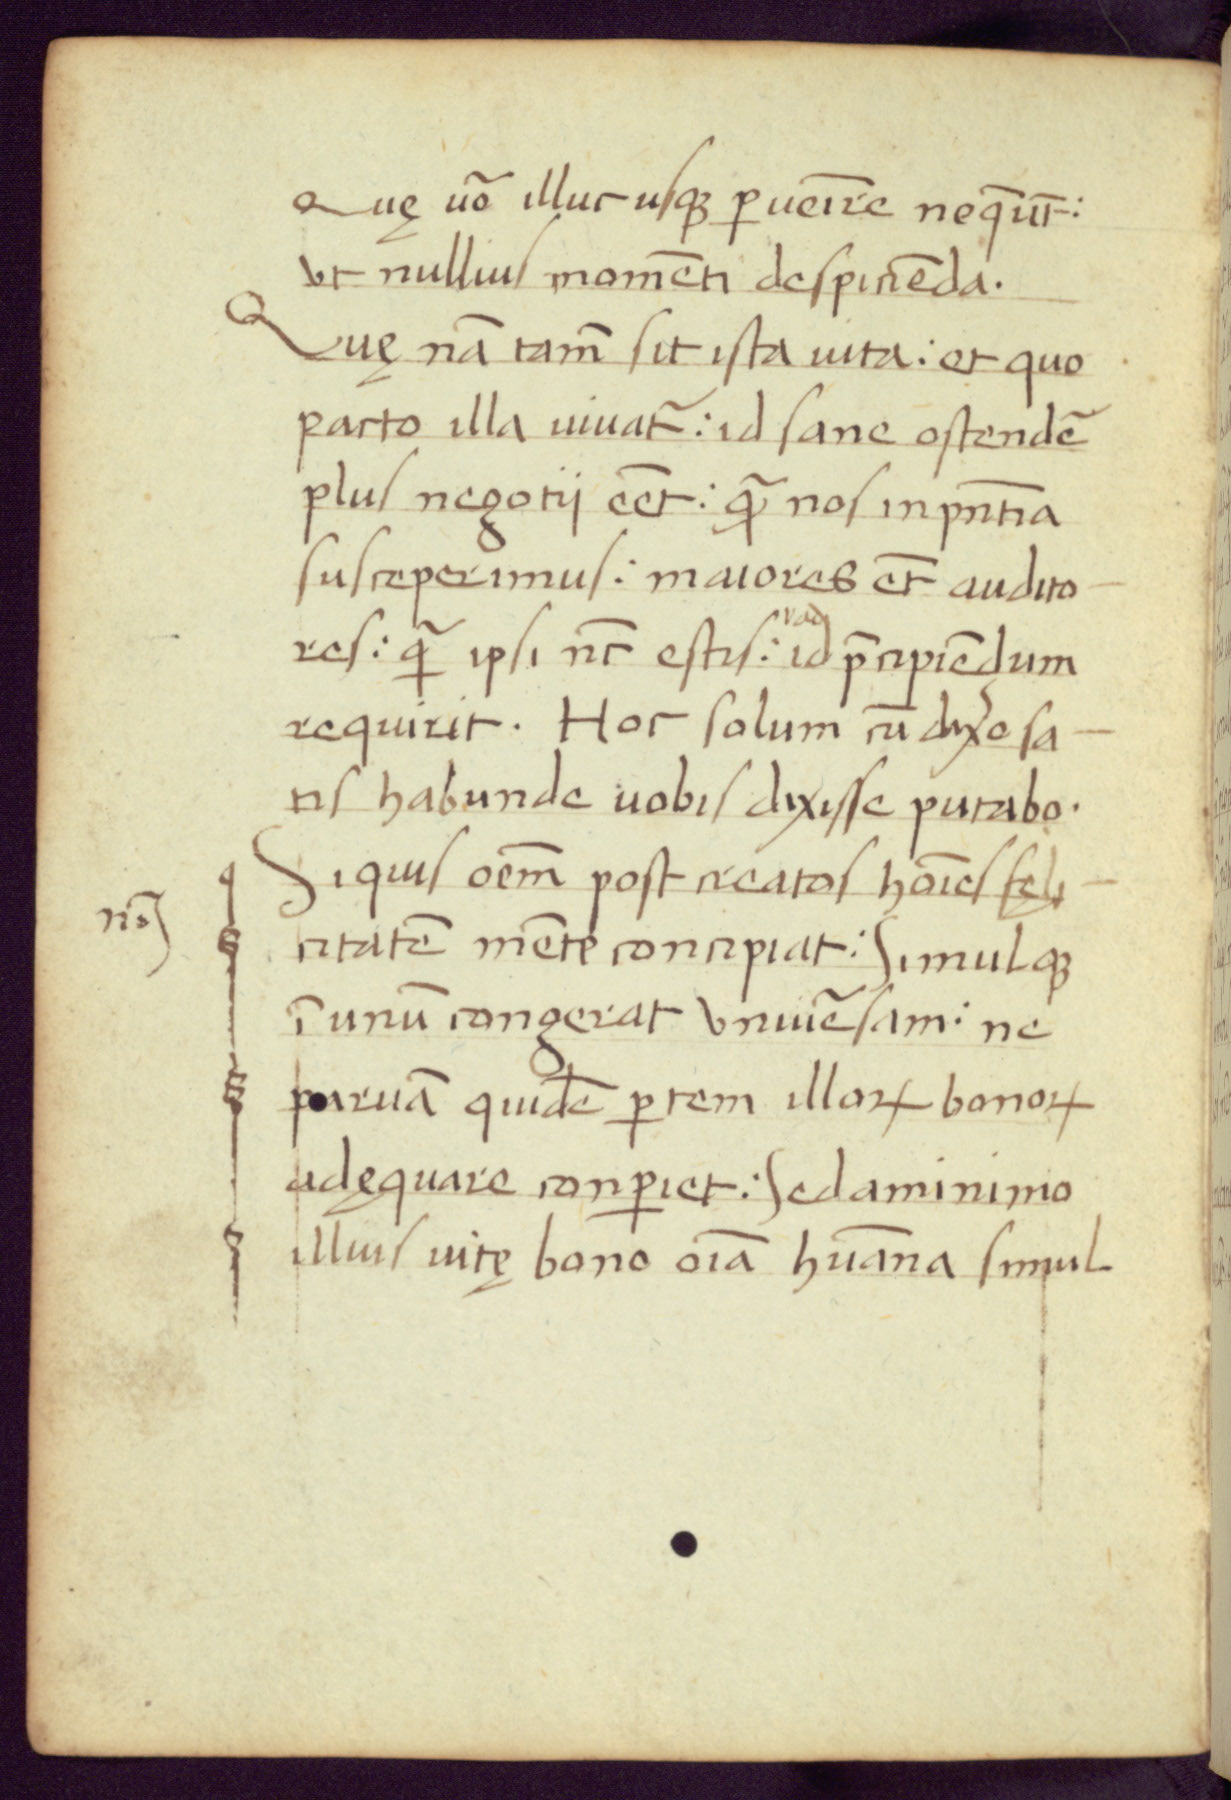 Quę uō illuc usqꝫ ꝑueīre neq̄ūt:
vt nullius momēti despiciēda.
Quę nā tam̄ sit ista uita: et quo
pacto illa uiuat᷑: id sane ostendē
plus negotij eēt: ꝙ̄ nos in pn̄tia
susceperimus: maiores et̄ audito-
res: q̄ ipsi nc̄ estis: ad id p̄cipiēdum
requirit. Hoc solum cū dixe᷑o sa-
tis habunde uobis dixisse putabo.
Siquis oēm post creatos hoīes fęli-
nō
citatē mēte concipiat: Simulqꝫ
ī unū congerat vniuēsam: ne
paruā quidē ꝑtem illoꝝ bonoꝝ
adęquare conꝑiet: Sed a minimo
illius uitę bono oīa hūana simul